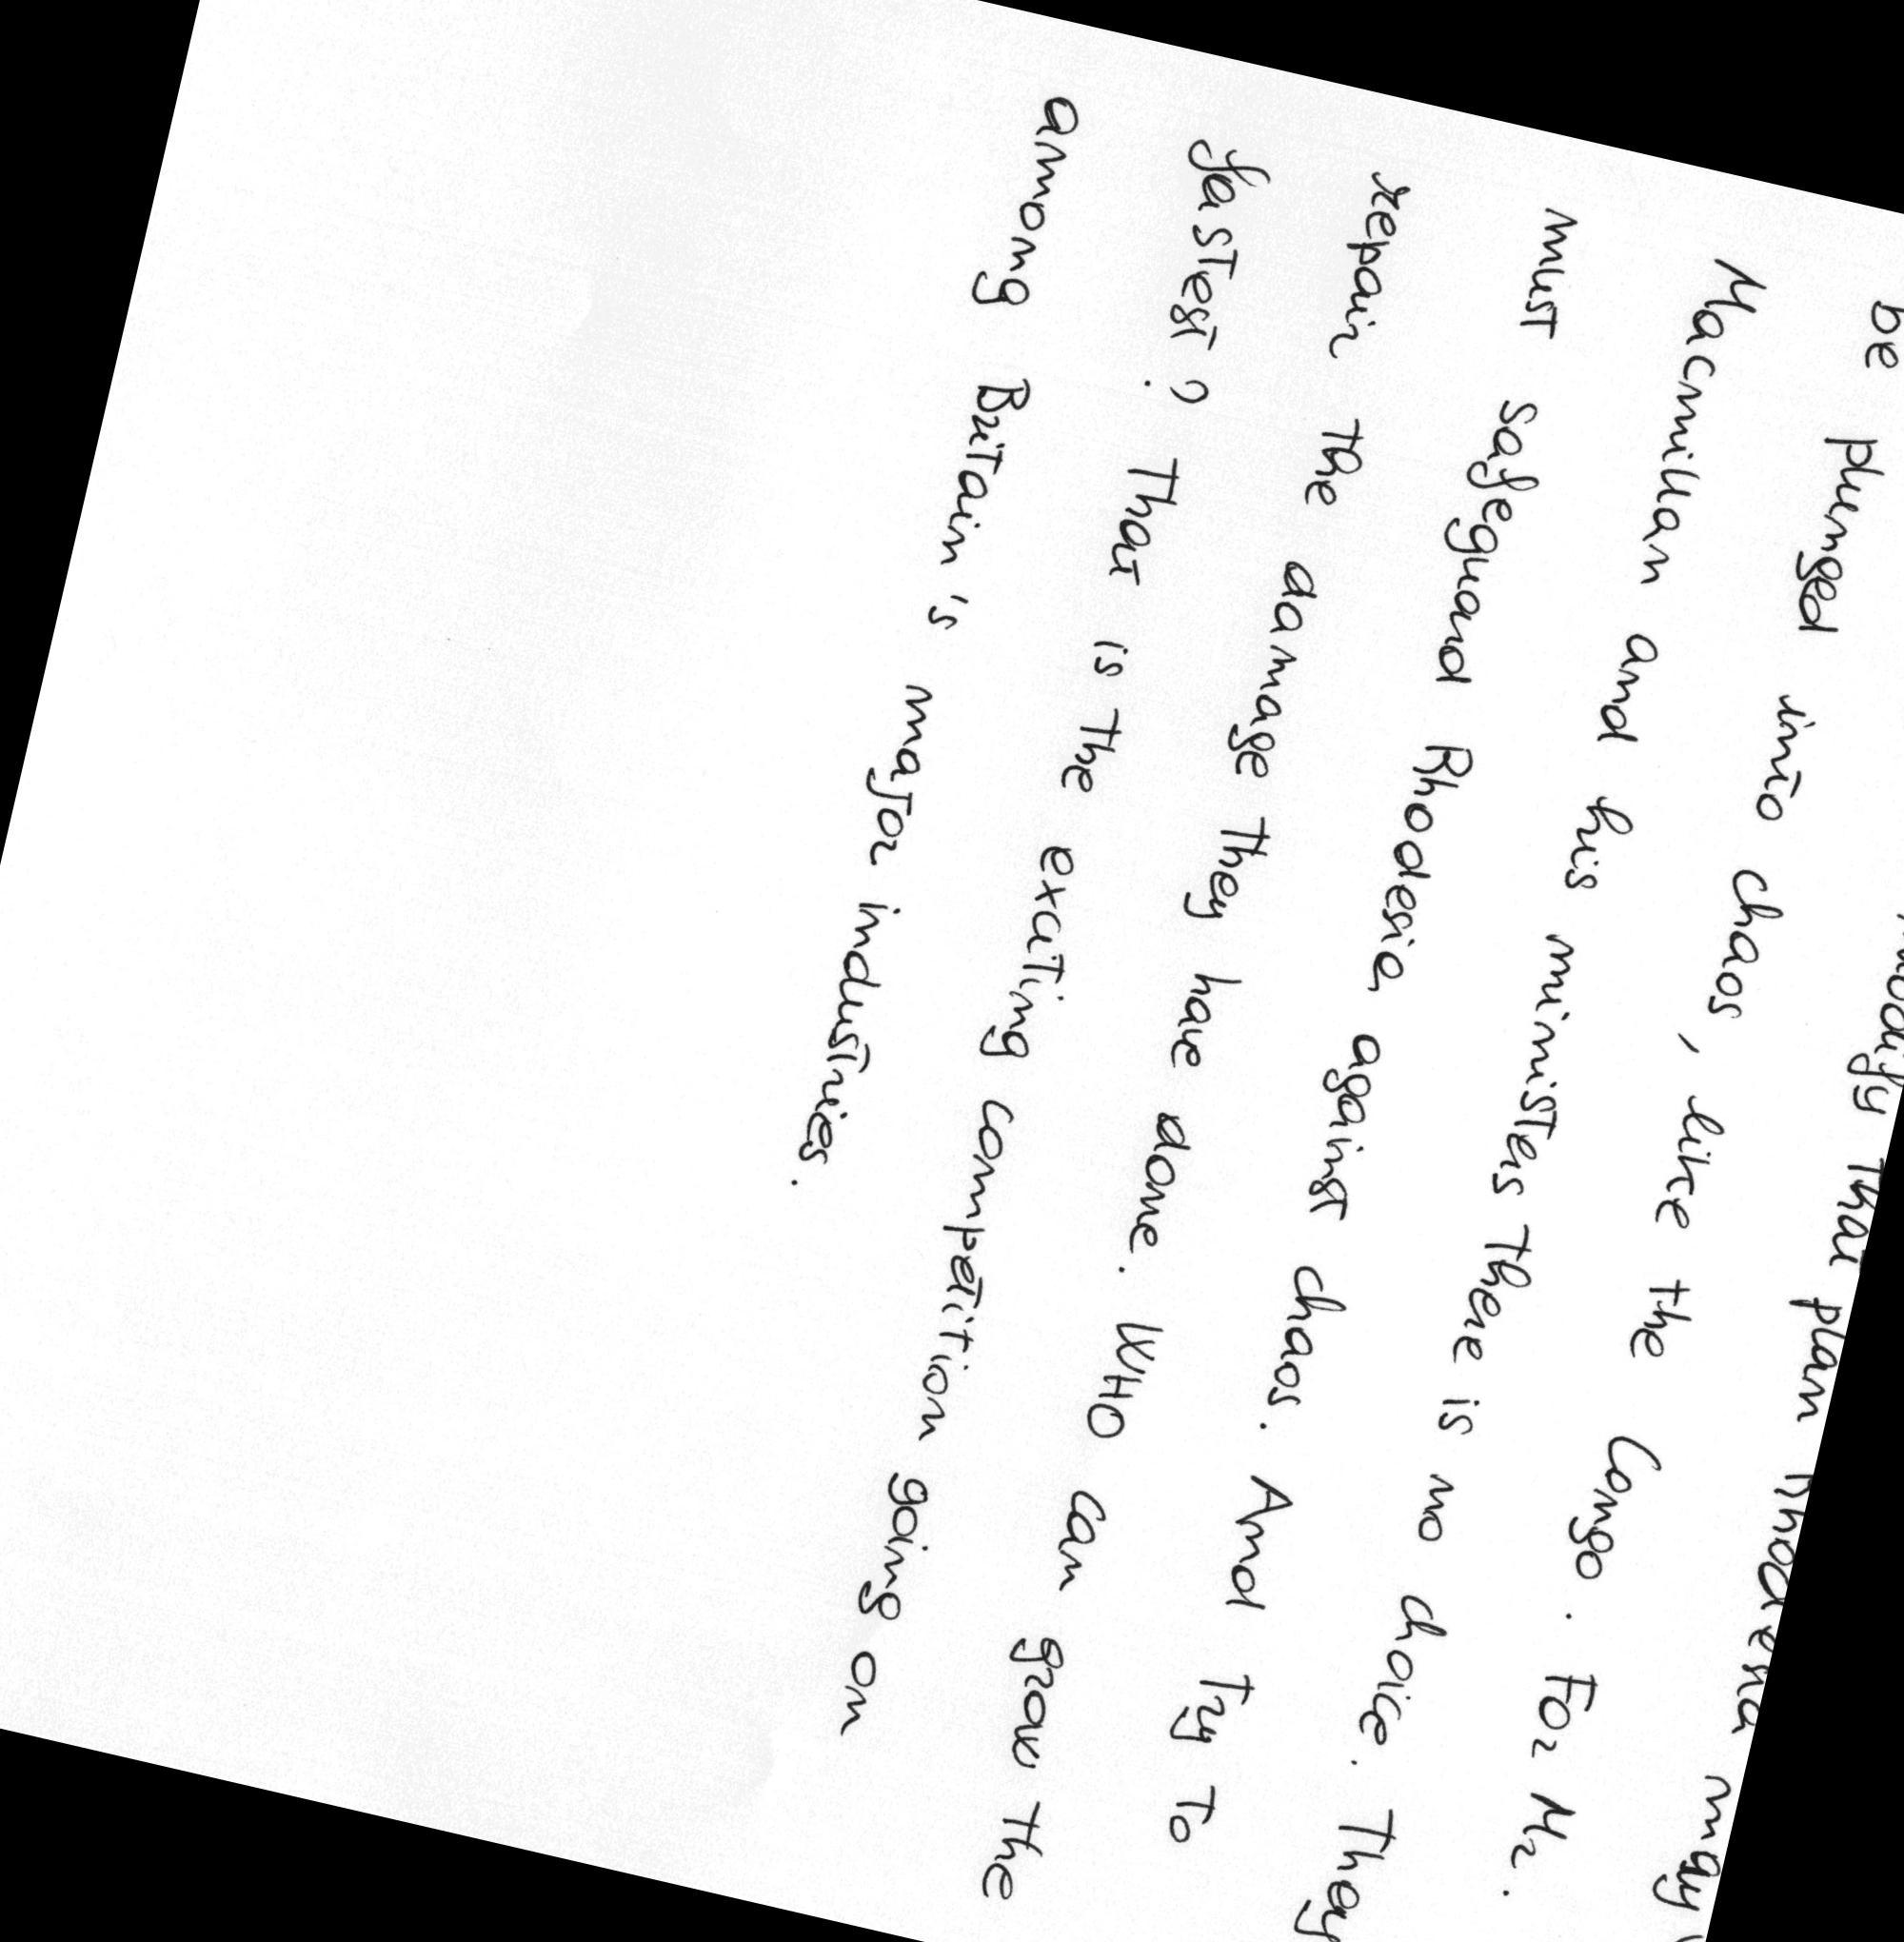 modify that plan Rhodesia may
be plunged into chaos, like the Congo. For Mr.
Macmillan and his ministers there is no choice. They
must safeguard Rhodesia against chaos. And try to
repair the damage they have done. WHO can grow the
fastest? That is the exciting competition going on
among Britain's major industries.